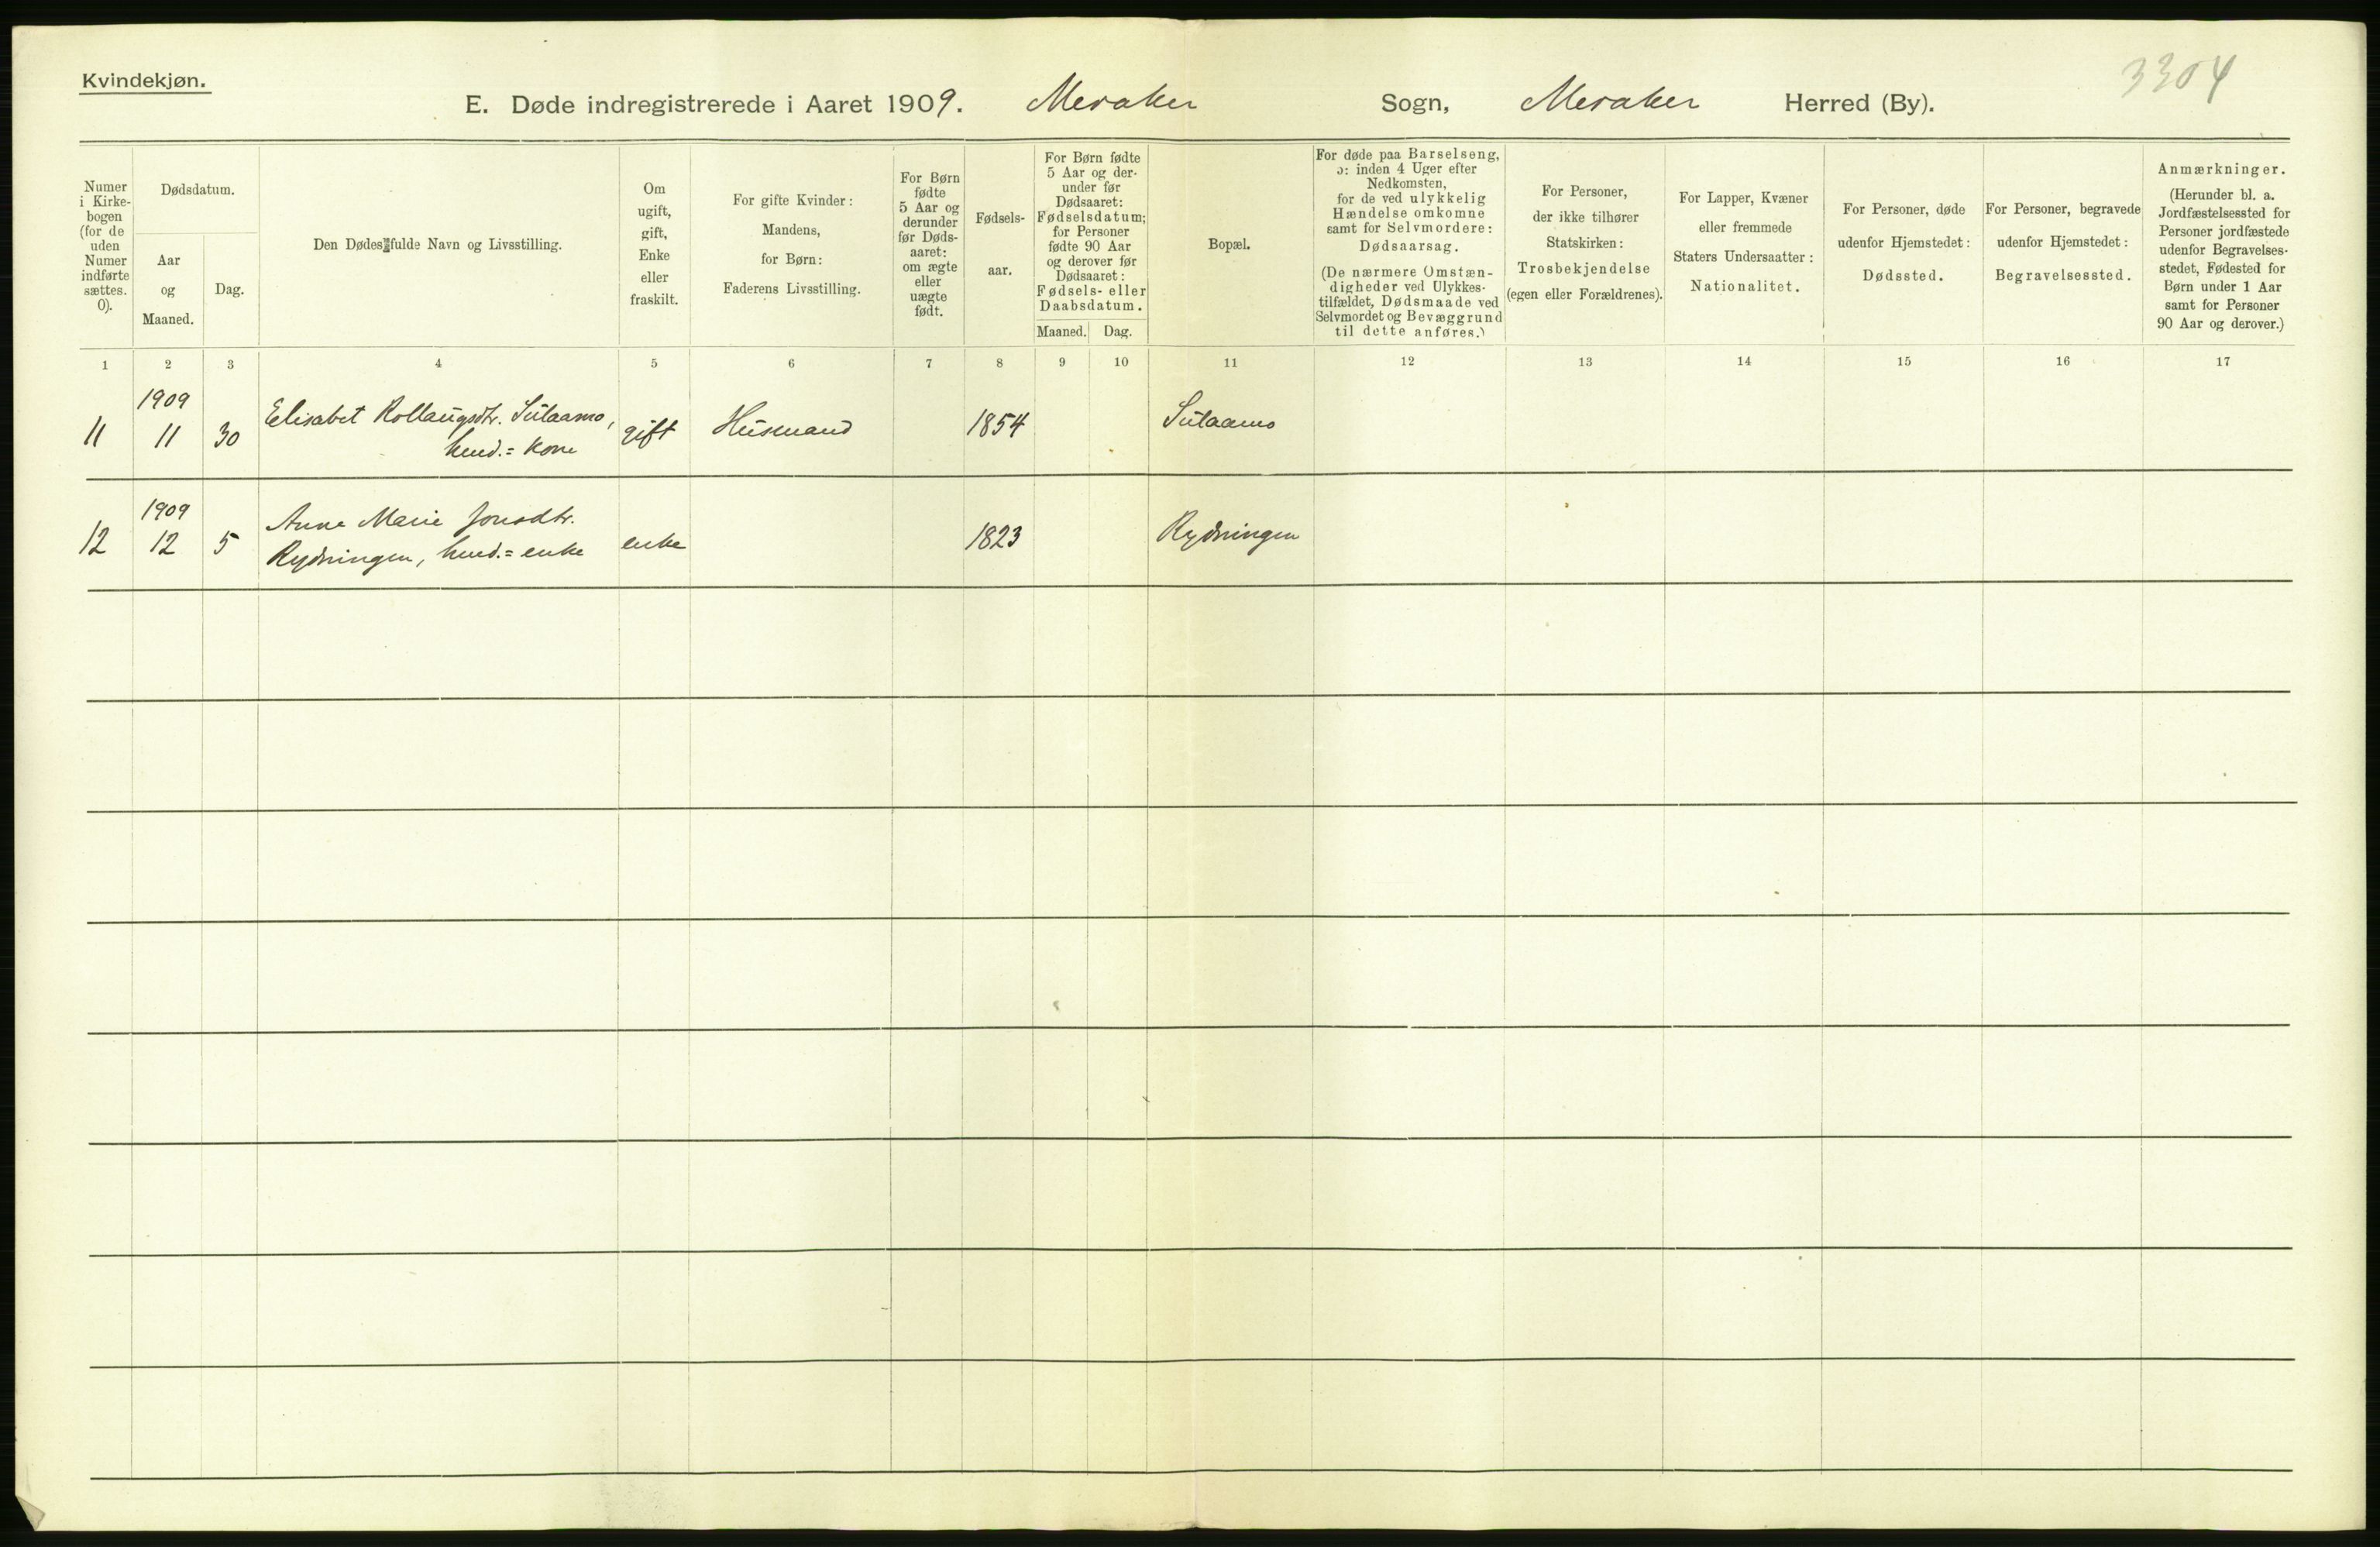 Kvindekjøn.
3304
E. Døde indregistrerede i Aaret 1909. Meraker Sogn, Meraker Herred (By).
Numer
i Kirke-
bogen
(for de
uden
Numer
indførte
sættes.
0).
Dødsdatum.
Aar
og
Maaned.
Dag.
Den Dødes fulde Navn og Livsstilling.
Om
ugift,
gift,
Enke
eller
fraskilt.
For gifte Kvinder:
Mandens,
for Børn:
Faderens Livsstilling.
For Børn
fødte
5 Aar og
derunder
før Døds-
aaret:
om ægte
eller
uægte
født.
Fødsels-
aar.
For Børn fødte
5 Aar og der-
under før
Dødsaaret:
Fødselsdatum;
for Personer
fødte 90 Aar
og derover før
Dødsaaret:
Fødsels- eller
Daabsdatum.
Maaned. Dag.
Bopæl.
For døde paa Barselseng,
ɔ: inden 4 Uger efter
Nedkomsten,
for de ved ulykkelig
Hændelse omkomne
samt for Selvmordere:
Dødsaarsag.
(De nærmere Omstæn-
digheder ved Ulykkes-
tilfældet, Dødsmaade ved
Selvmordet og Bevæggrund
til dette anføres.)
For Personer,
der ikke tilhører
Statskirken:
Trosbekjendelse
(egen eller Forældrenes).
For Lapper, Kvæner
eller fremmede
Staters Undersaatter:
Nationalitet.
For Personer, døde
udenfor Hjemstedet:
Dødssted.
For Personer, begravede
udenfor Hjemstedet:
Begravelsessted.
Anmærkninger.
(Herunder bl. a.
Jordfæstelsessted for
Personer jordfæstede
udenfor Begravelses-
stedet, Fødested for
Børn under 1 Aar
samt for Personer
90 Aar og derover.)
1 2 3 4 5 6 7 8 9 10 11 12 13 14 15 16 17
1909
11 11 30 Elisabet Rollaugsdtr. Sulaamo, gift Husmand 1854 Sulaamo
husd.= kone
1909
12 12 5 Anne Marie Jonsdtr. enke 1823 Rydningen
Rydningen, husd.= enke